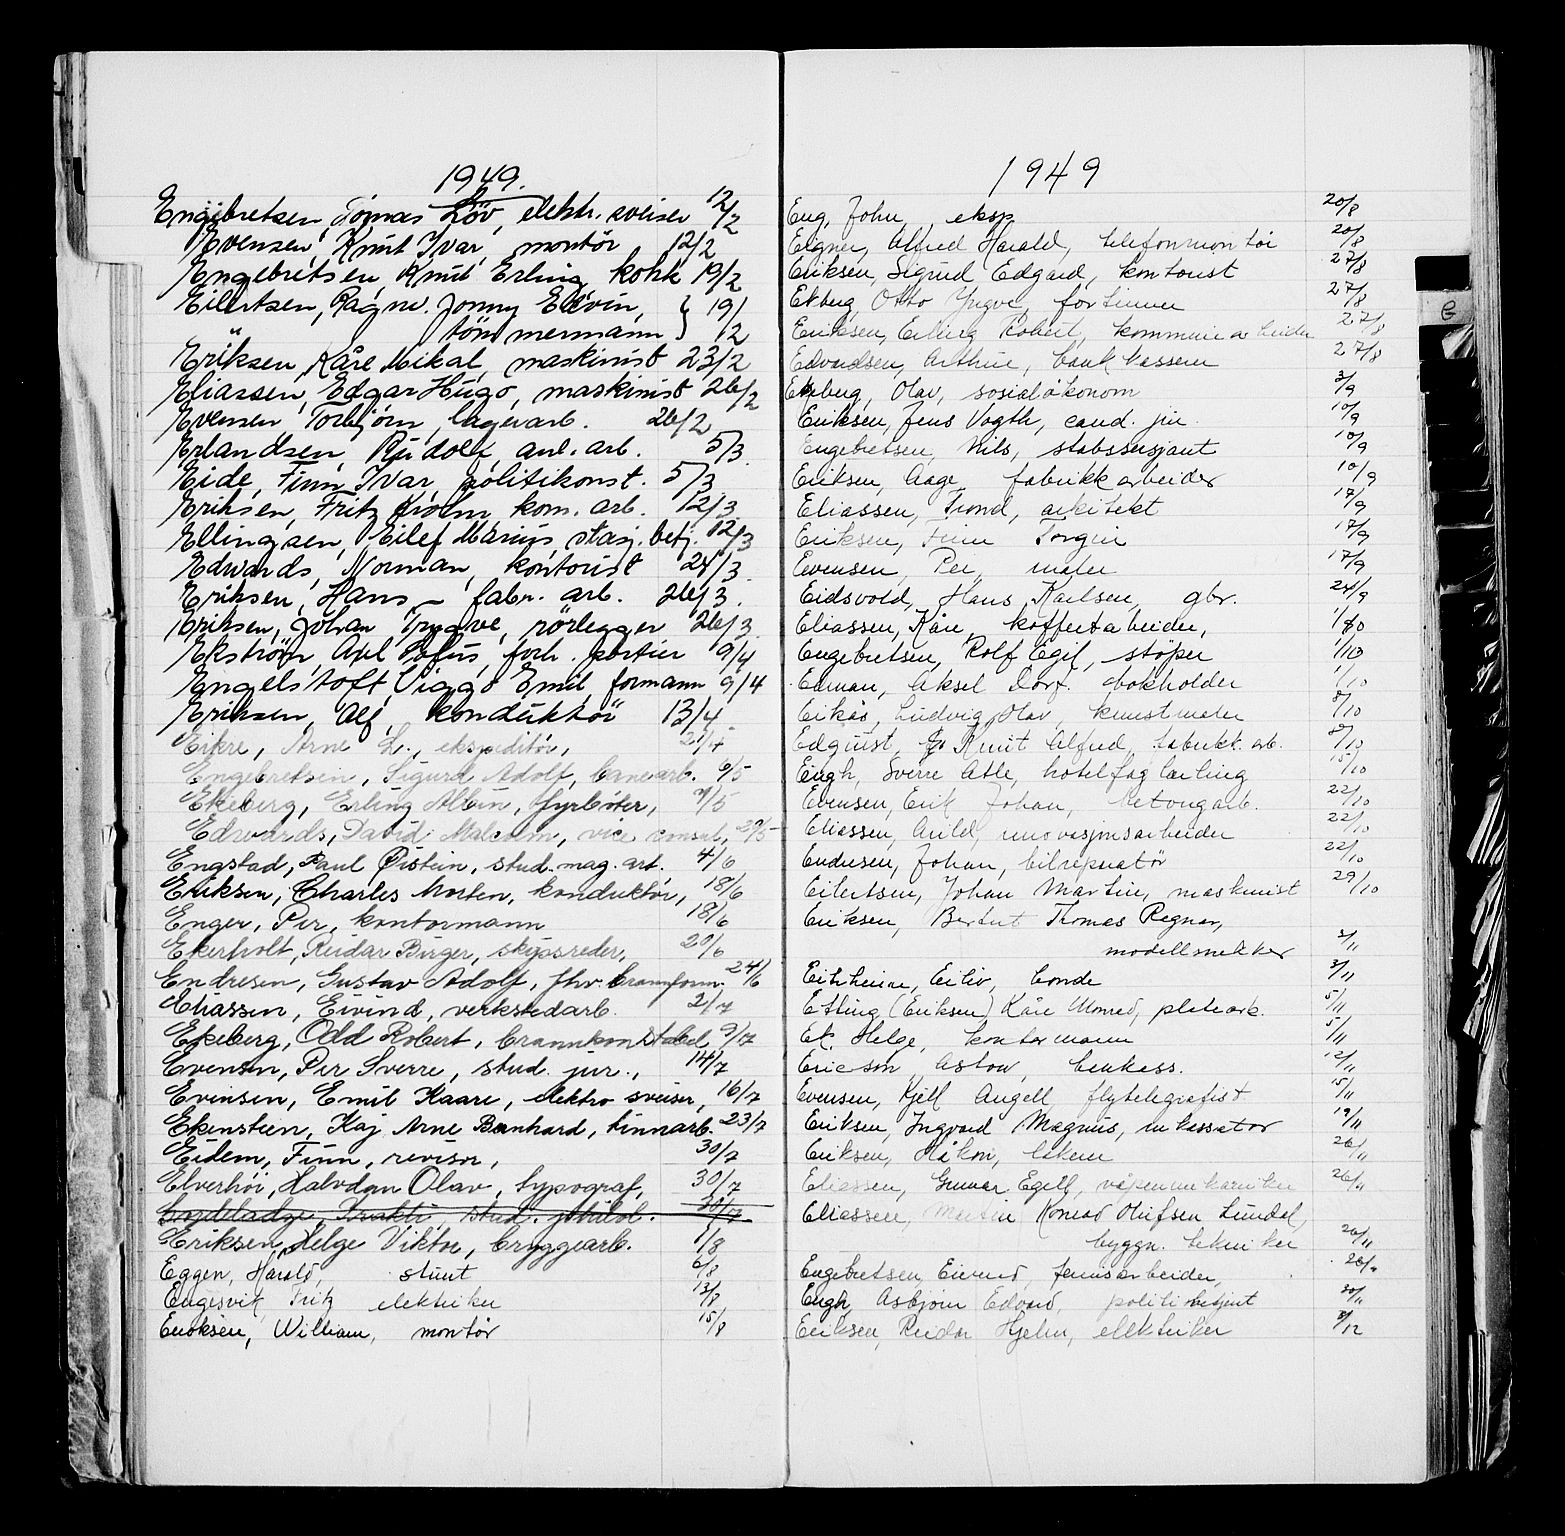 1949.
Engebretsen, Tomas Löv, elektr. sveiser 12/2
Evensen, Knut Ivar, montör 12/2
Engebretsen, Knut Erling, kokk 19/2
Eilertsen, Ragnv. Jonny Edvin, } 19/
" tömmermann } 12
Eriksen, Kåre Mikal, maskinist 23/2
Eliassen, Edgar Hugo, maskinist 26/2
Evensen, Torbjörn, lagerarb. 26/2
Erlandsen, Rudolf, anl. arb. 5/3
Eide, Finn Ivar, politikonst. 5/3
Eriksen, Fritz Holm, kom. arb. 12/3
Ellingsen, Eilef Marius, stasj. betj. 12/3
Edwards, Norman, kontorist 24/3
Eriksen, Hans – fabr. arb. 26/3.
Eriksen, Johan Trygve, rörlegger 26/3
Ekström, Axl Rufus, forh. portier 9/4
Engelstoft, Viggo Emil, formann 9/4
Eriksen, Alf, konduktör 13/4
Eikre, Arne L., ekspeditör,
Engebretsen, Sigurd Adolf, banearb. 6/5
Ekeberg, Erling Albin, fyrböter, /5
Edwards, David Malcolm, vice consul, 29/5
Engstad, Paul Øistein, stud. mag. art. 4/6
Eriksen, Charles Morten, konduktör, 18/6
Enger, Per, kontormann 18/6
Ekerholt, Reidar Birger, skipsreder, 20/6
Endresen, Gustav Adolf, fhv. brannform. 24/6
Eliassen, Eivind, verkstedarb. 2/7
Ekeberg, Odd Robert, brannkonstabel 9/7
Evensen, Per Sverre, stud. jur., 14/7
Evensen, Emil Kaare, elektro sveiser, 16/7
Ekensteen, Kaj Arne Bernhard, tinnarb. 23/7
Eidem, Finn, revisor, 30/7
Elverhöi, Halvdan Olav, typograf, 30/7
stud. 30/7
Eriksen, Helge Viktor, bryggearb. 1/8
Eggen, Harald, stunt 6/8
Engesvik, Fritz elektriker 13/8
Enoksen, William, montör 15/8
1949
Eng, John, eksp. 20/8
Eigner, Alfred Harald, telefonmontör 20/8
Eriksen, Sigurd Edgard, kontorist 27/8
Ekberg, Otto Yngve, fortinner 27/8
Eriksen, Erling Robert, kommunearbeider 27/8
Edvardsen, Arthur, bankkasserer 27/8
Ekeberg, Olav, sosialökonom 3/9
Eriksen, Jens Vogth, cand. jur. 10/9
Engebretsen, Nils, stabssersjant 10/9
Eriksen, Aage, fabrikkarbeider 10/9
Eliassen, Trond, arkitekt 17/9
Eriksen, Finn Torgin 17/9
Evensen, Per, maler 17/9
Eidsvold, Hans Karlsen, gbr. 24/9
Eliassen, Kåre, koffertarbeider, 1/10
Engebretsen, Rolf Egil, stöper 1/10
Edman, Aksel Dorf. bokholder 1/10
Eikås, Ludvig Olav, kunstmaler 8/10
Edquist, Knut Alfred, fabrikk. arb. 8/10
Engh, Sverre Atle, hotelfaglærling 15/10
Evensen, Erik Johan, betongarb. 22/10
Eliassen, Arild, renovasjonsarbeider 22/10
Endresen, Johan, bilreparatör 22/10
Eilertsen, Johan Martin, maskinist 29/10
Eriksen, Berthel Thomas Regnar,
modellsnekker 2/11
Eikheim, Eiliv, bonde 3/11
Etting (Eriksen) Kåre Monrad, platearb. 5/11
Ek, Helge, kontormann 5/11
Ericson, Aston, benkass. 12/11
Evensen, Kjell Angell flytelegrafist 15/11
Eriksen, Ingvard Magnus, inkassator 19/11
Eriksen, Håkon, bökem 26/11
Eliassen, Gunnar Egell, våpenmekaniker 26/11
Eliassen, Martin Konrad Olufsen Lundal,
byggn. tekniker 26/11
Engebretsen, Eivind, jernarbeider, 26/11
Engh, Asbjörn Edvard, politibetjent 30/11
Eriksen, Reidar Hjelm, elektriker 3/12
E